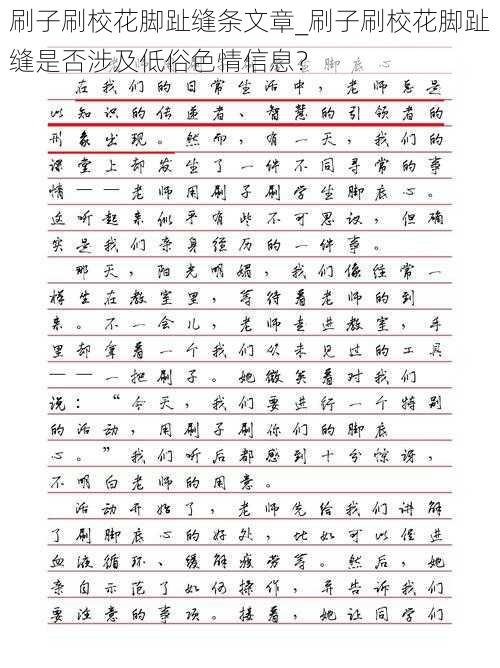 刷子刷校花脚趾缝条文章_刷子刷校花脚趾
缝是否涉及低俗色情信息?
脚底心
在我们的日常生活中，老师总是
以知识的传递者、智慧的引领者的
形象出现。然而，有一天，我们的
课堂上却发生了一件不同寻常的事
情——老师用刷子刷学生脚底心。
这听起来似乎有些不可思议，但确
实是我们亲身经历的一件事。
那天，阳光明媚，我们像往常一
样坐在教室里，等待着老师的到
来。不一会儿，老师走进教室，手
里却拿着一个我们从未见过的工具
——一把刷子。她微笑着对我们
说：“今天，我们要进行一个特别
的活动，用刷子刷你们的脚底
心。”我们听后都感到十分惊讶，
不明白老师的用意。
活动开始了，老师先给我们讲解
了刷脚底心的好处，比如可以促进
血液循环、缓解疲劳等。然后，她
亲自示范了如何操作，并告诉我们
要注意的事项。接着，她让同学们